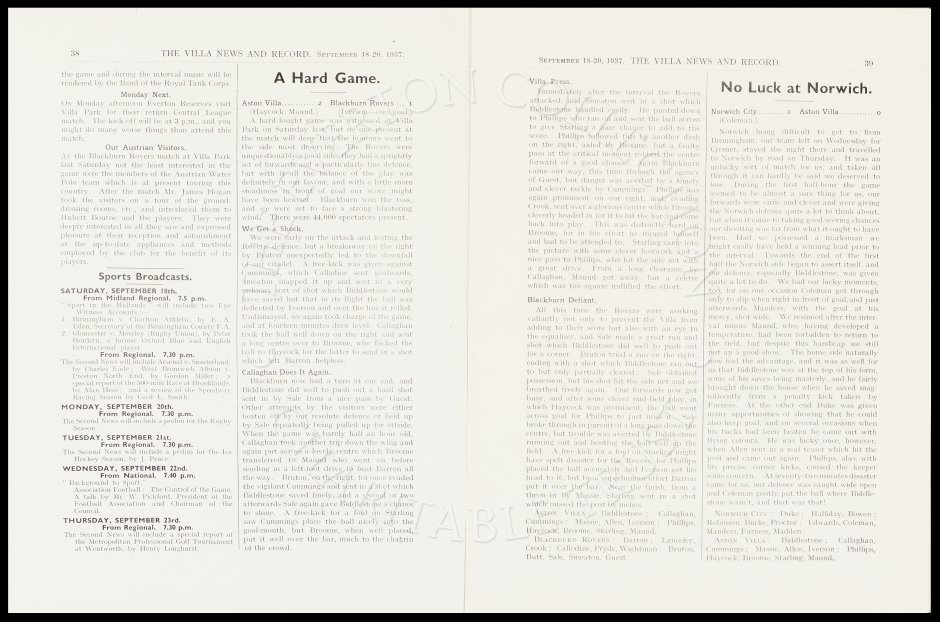 38 THE VILLA NEWS AND RECORD, SEPTEMBER 18-20, 1937.
the game and during the interval music will be
rendered by the Band of the Royal Tank Corps.
Monday Next.
On Monday afternoon Everton Reserves visit
Villa Park for their return Central League
match. The kick-off will be at 3 p.m., and you
might do many worse things than attend this
match.
Our Austrian Visitors.
At the Blackburn Rovers match at Villa Park
last Saturday not the least interested in the
game were the members of the Austrian Water
Polo team which is at present touring this
country. After the match Mr. James Hogan
took the visitors on a tour of the ground,
dressing rooms, etc., and introduced them to
Hubert Bourne and the players. They were
deeply interested in all they saw and expressed
pleasure at their reception and astonishment
at the up-to-date appliances and methods
employed by the club for the benefit of its
players.
Sports Broadcasts.
SATURDAY, SEPTEMBER 18th.
From Midland Regional. 7.5 p.m.
"Sport in the Midlands" will include two Eye
Witness Accounts—
1. Birmingham v. Charlton Athletic, by E. A.
Eden, Secretary of the Birmingham County F.A.
2. Gloucester v. Moseley (Rugby Union), by Peter
Hordern, a former Oxford Blue and English
International player.
From Regional. 7.30 p.m.
The Second News will include Arsenal v. Sunderland,
by Charles Eade; West Bromwich Albion v.
Preston North End, by Gordon Miller; a
special report of the 500-mile Race at Brooklands,
by Alan Hess; and a review of the Speedway
Racing Season by Cecil L. Smith.
MONDAY, SEPTEMBER 20th.
From Regional. 7.30 p.m.
The Second News will include a prelim for the Rugby
Season.
TUESDAY, SEPTEMBER 21st.
From Regional. 7.30 p.m.
The Second News will include a prelim for the Ice
Hockey Season, by J. Peace.
WEDNESDAY, SEPTEMBER 22nd.
From National. 7.40 p.m.
"Background to Sport."
Association Football: The Control of the Game.
A talk by Mr. W. Pickford, President of the
Football Association and Chairman of the
Council.
THURSDAY, SEPTEMBER 23rd.
From Regional. 7.30 p.m.
The Second News will include a special report of
the Metropolitan Professional Golf Tournament
at Wentworth, by Henry Longhurst.
A Hard Game.
Aston Villa............ 2 Blackburn Rovers ... 1
(Haycock, Maund.) (Iverson—own goal)
A hard-fought game was witnessed at Villa
Park on Saturday last, but no one present at
the match will deny that the honours went to
the side most deserving. The Rovers were
unquestionably a good side, they had a sprightly
set of forwards and a particularly fine defence,
but with it all the balance of the play was
definitely in our favour, and with a little more
steadiness in front of goal our score might
have been heavier. Blackburn won the toss,
and we were set to face a strong blustering
wind. There were 44,000 spectators present.
We Get a Shock.
We were early on the attack and testing the
Rovers' defence, but a breakaway on the right
by Bruton unexpectedly led to the downfall
of our citadel. A free-kick was given against
Cummings, which Calladine sent goalwards,
Smeaton snapped it up and sent in a very
ordinary sort of shot which Biddlestone would
have saved but that in its flight the ball was
deflected by Iverson and over the line it rolled.
Undismayed, we again took charge of the game,
and at fourteen minutes drew level. Callaghan
took the ball well down on the right and sent
a long centre over to Broome, who flicked the
ball to Haycock for the latter to send in a shot
which left Barron helpless.
Callaghan Does It Again.
Blackburn now had a turn at our end, and
Biddlestone did well to push out a hard shot
sent in by Sale from a nice pass by Guest.
Other attempts by the visitors were either
beaten off by our resolute defence or held up
by Sale repeatedly being pulled up for offside.
When the game was barely half an hour old,
Callaghan took another trip down the wing and
again put across a lovely centre which Broome
transferred to Maund who went on before
sending in a left-foot drive to beat Barron all
the way. Bruton, on the right, for once evaded
the vigilant Cummings and sent in a shot which
Biddlestone saved finely, and a second or two
afterwards Sale again gave Biddlestone a chance
to shine. A free-kick for a foul on Starling
saw Cummings place the ball nicely into the
goal-mouth, but Broome, when well placed,
put it well over the bar, much to the chagrin
of the crowd.
SEPTEMBER 18-20, 1937. THE VILLA NEWS AND RECORD 39
Villa Press.
Immediately after the interval the Rovers
attacked, and Smeaton sent in a shot which
Biddlestone handled easily. He punted down
to Phillips who ran on and sent the ball across
to give Starling a rare chance to add to the
score. Phillips followed this by another dash
on the right, aided by Broome, but a faulty
pass at the critical moment robbed the centre
forward of a good chance. Again Blackburn
came our way, this time through the agency
of Guest, but danger was averted by a timely
and clever tackle by Cummings. Phillips was
again prominent on our right, and, evading
Crook, sent over a glorious centre which Broome
cleverly headed in for it to hit the bar and come
back into play. This was distinctly hard on
Broome, for in his effort he injured himself
and had to be attended to. Starling came into
the picture with some clever footwork and a
nice pass to Phillips, who hit the side net with
a great drive. From a long clearance by
Callaghan, Maund got away, but a centre
which was too square nullified the effort.
Blackburn Defiant.
All this time the Rovers were working
valiantly not only to prevent the Villa from
adding to their score but also with an eye to
the equaliser, and Sale made a great run and
shot which Biddlestone did well to push out
for a corner. Bruton tried a run on the right,
ending with a shot which Biddlestone ran out
to but only partially cleared. Sale obtained
possession, but his shot hit the side net and we
breathed freely again. Our forwards now got
busy, and after some clever mid-field play, in
which Haycock was prominent, the ball went
across goal for Phillips to just miss it. Sale
broke through in pursuit of a long pass down the
centre, but trouble was averted by Biddlestone
running out and booting the ball well up the
field. A free-kick for a foul on Starling might
have spelt disaster for the Rovers, for Phillips
placed the ball accurately and Iverson got his
head to it, but by a superhuman effort Barron
put it over the bar. Near the finish, from a
throw-in by Massie, Starling sent in a shot
which missed the post by inches.
ASTON VILLA: Biddlestone; Callaghan,
Cummings; Massie, Allen, Iverson; Phillips,
Haycock, Broome, Starling, Maund.
BLACKBURN ROVERS: Barron; Lanceley,
Crook; Calladine, Pryde, Wightman; Bruton,
Butt, Sale, Smeaton, Guest.
No Luck at Norwich.
Norwich City......... 1 Aston Villa ............ 0
(Coleman).
Norwich being difficult to get to from
Birmingham, our team left on Wednesday for
Cromer, stayed the night there and travelled
to Norwich by road on Thursday. It was an
unlucky sort of match for us, and taken all
through it can hardly be said we deserved to
lose. During the first half-hour the game
seemed to be almost a sure thing for us, our
forwards were virile and clever and were giving
the Norwich defence quite a lot to think about,
but when it came to taking good scoring chances
our shooting was far from what it ought to have
been. Had we possessed a marksman we
might easily have held a winning lead prior to
the interval. Towards the end of the first
half the Norwich side began to assert itself, and
our defence, especially Biddlestone, was given
quite a lot to do. We had our lucky moments,
too, for on one occasion Coleman got through
only to slip when right in front of goal, and just
afterwards Manders, with the goal at his
mercy, shot wide. We resumed after the inter-
val minus Maund, who, having developed a
temperature, had been forbidden to return to
the field, but despite this handicap we still
put up a good show. The home side naturally
now had the advantage, and it was as well for
us that Biddlestone was at the top of his form,
some of his saves being masterly, and he fairly
brought down the house when he saved mag-
nificently from a penalty kick taken by
Furness. At the other end Duke was given
many opportunities of showing that he could
also keep goal, and on several occasions when
his backs had been beaten he came out with
flying colours. He was lucky once, however,
when Allen sent in a real teaser which hit the
post and came out again. Phillips, also, with
his precise corner kicks, caused the keeper
some concern. At seventy-two minutes disaster
came for us, our defence was caught wide open
and Coleman gently put the ball where Biddle-
stone wasn't, and that was that!
NORWICH CITY: Duke; Halliday, Bowen;
Robinson, Burke, Proctor; Edwards, Coleman,
Manders, Furness, Madden.
ASTON VILLA: Biddlestone; Callaghan,
Cummings; Massie, Allen, Iverson; Phillips,
Haycock, Broome, Starling, Maund.